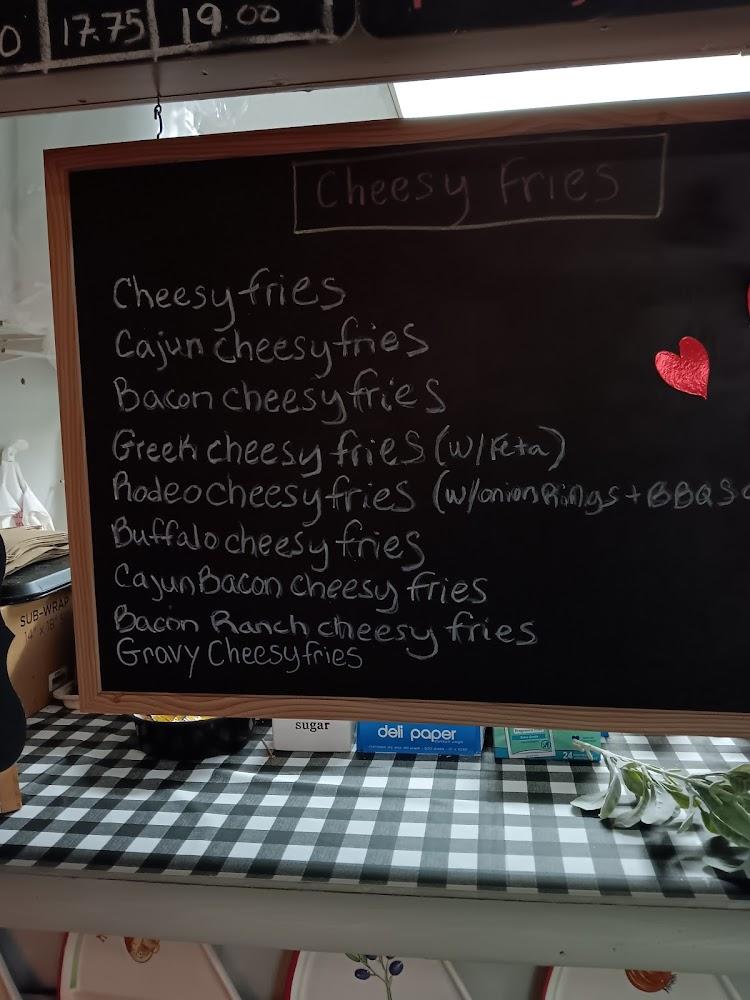 0 17.75 19.00
Cheesy Fries
Cheesy fries
Cajun cheesy fries
Bacon cheesy fries
Greek cheesy fries (w/Feta)
Rodeo cheesy fries (w/onion Rings + BBQ S
Buffalo cheesy fries
Cajun Bacon cheesy fries
Bacon Ranch cheesy fries
Gravy Cheesy fries
SUB-WRAP
sugar
deli paper
24